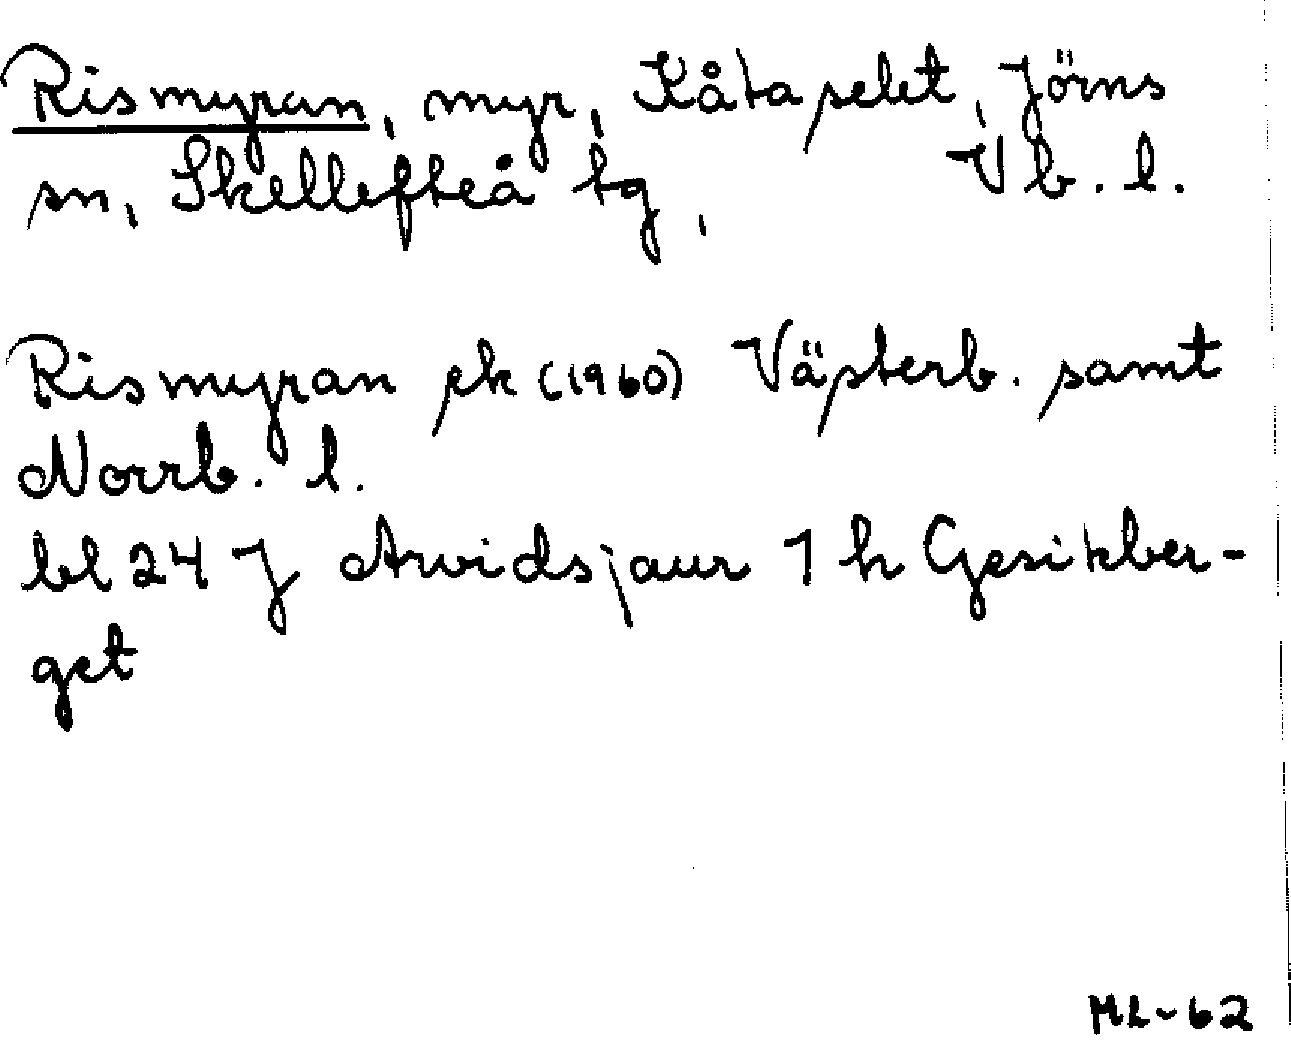 Rismyran, myr, Kåtaselet, Jörns
sn, Skellefteå tg, Vb. l.
Rismyran ek (1960) Västerb. samt
Norrb. l.
bl 24 J Arvidsjaur 1 h Gesikber-
get
ML-62